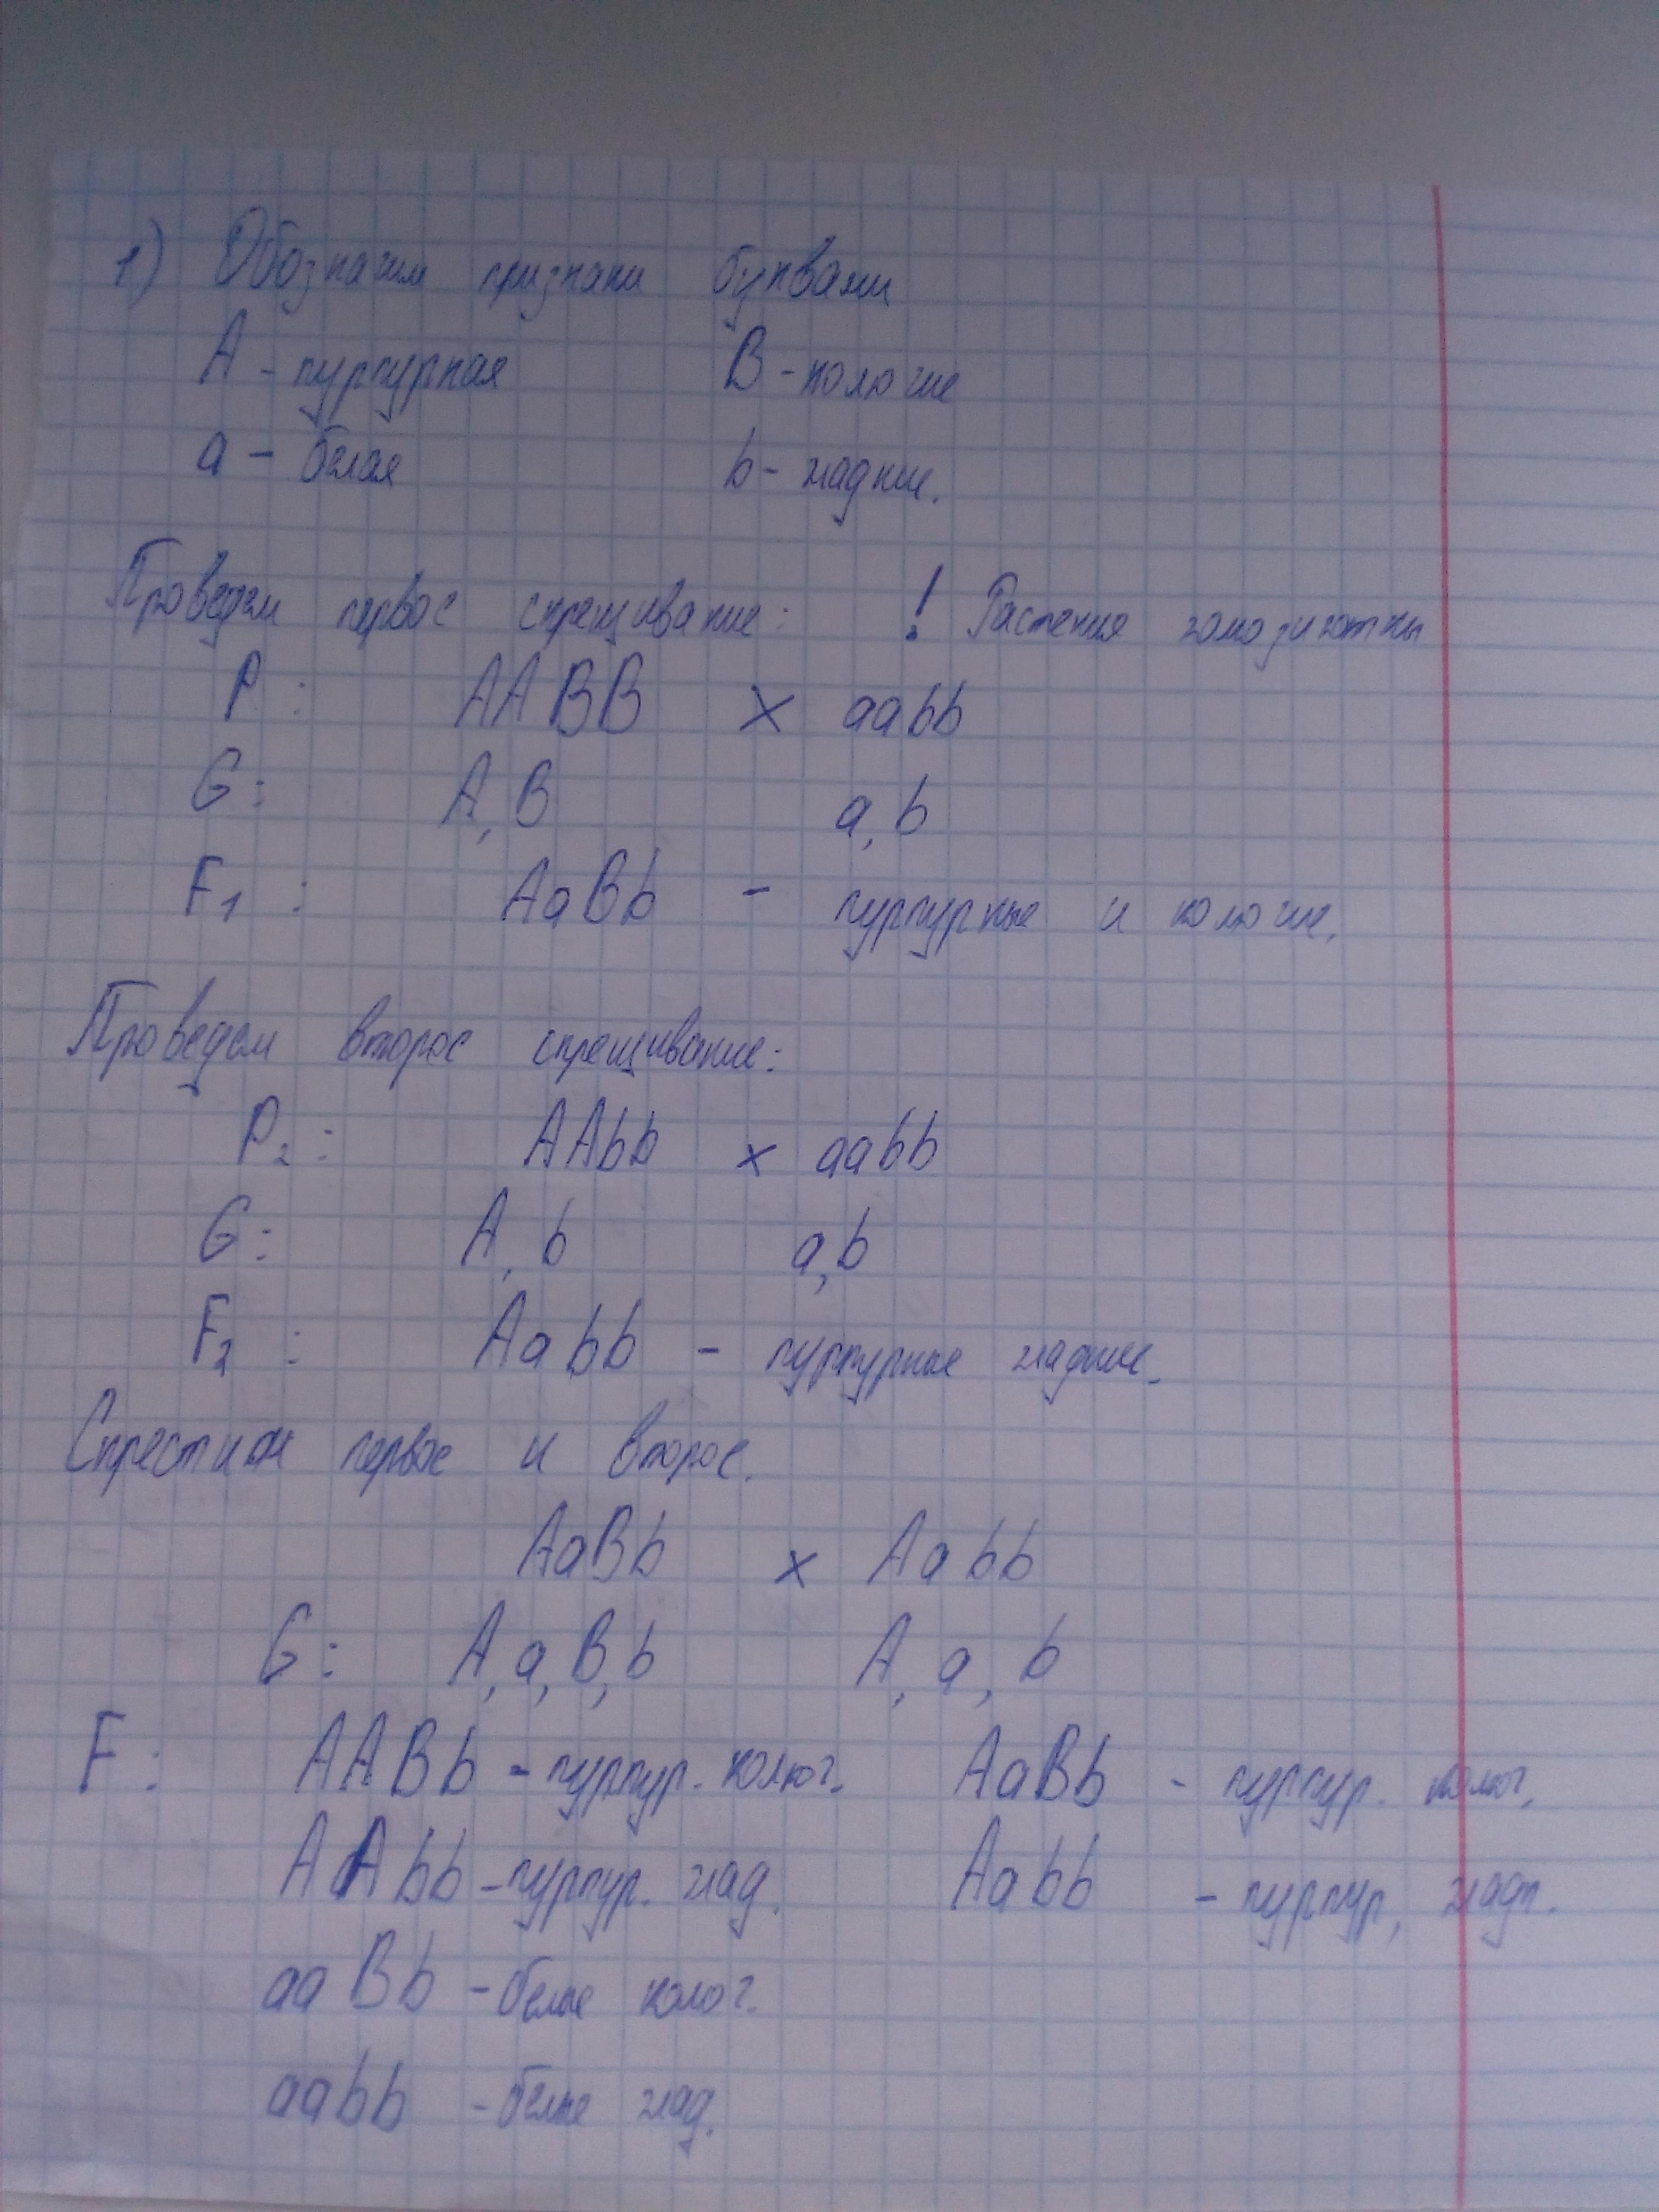 1) Обозначим признаки буквами
A - пурпурная B - колючие
a - белая b - гладкие.
Проведем первое скрещивание: ! Растения гомозиготны
P: AABB x aabb
G: A, B a, b
F1: AaBb - пурпурные и колючие.
Проведем второе скрещивание:
P2: AAbb x aabb
G: A, b a, b
F2: Aabb - пурпурные гладкие.
Скрестим первое и второе.
AaBb x Aabb
G: A, a, B, b A, a, b
F: AABb - пурпур. колюч. AaBb - пурпур. колюч.
AAbb - пурпур. глад. Aabb - пурпур, гладк.
aaBb - белые колюч.
aabb - белые глад.